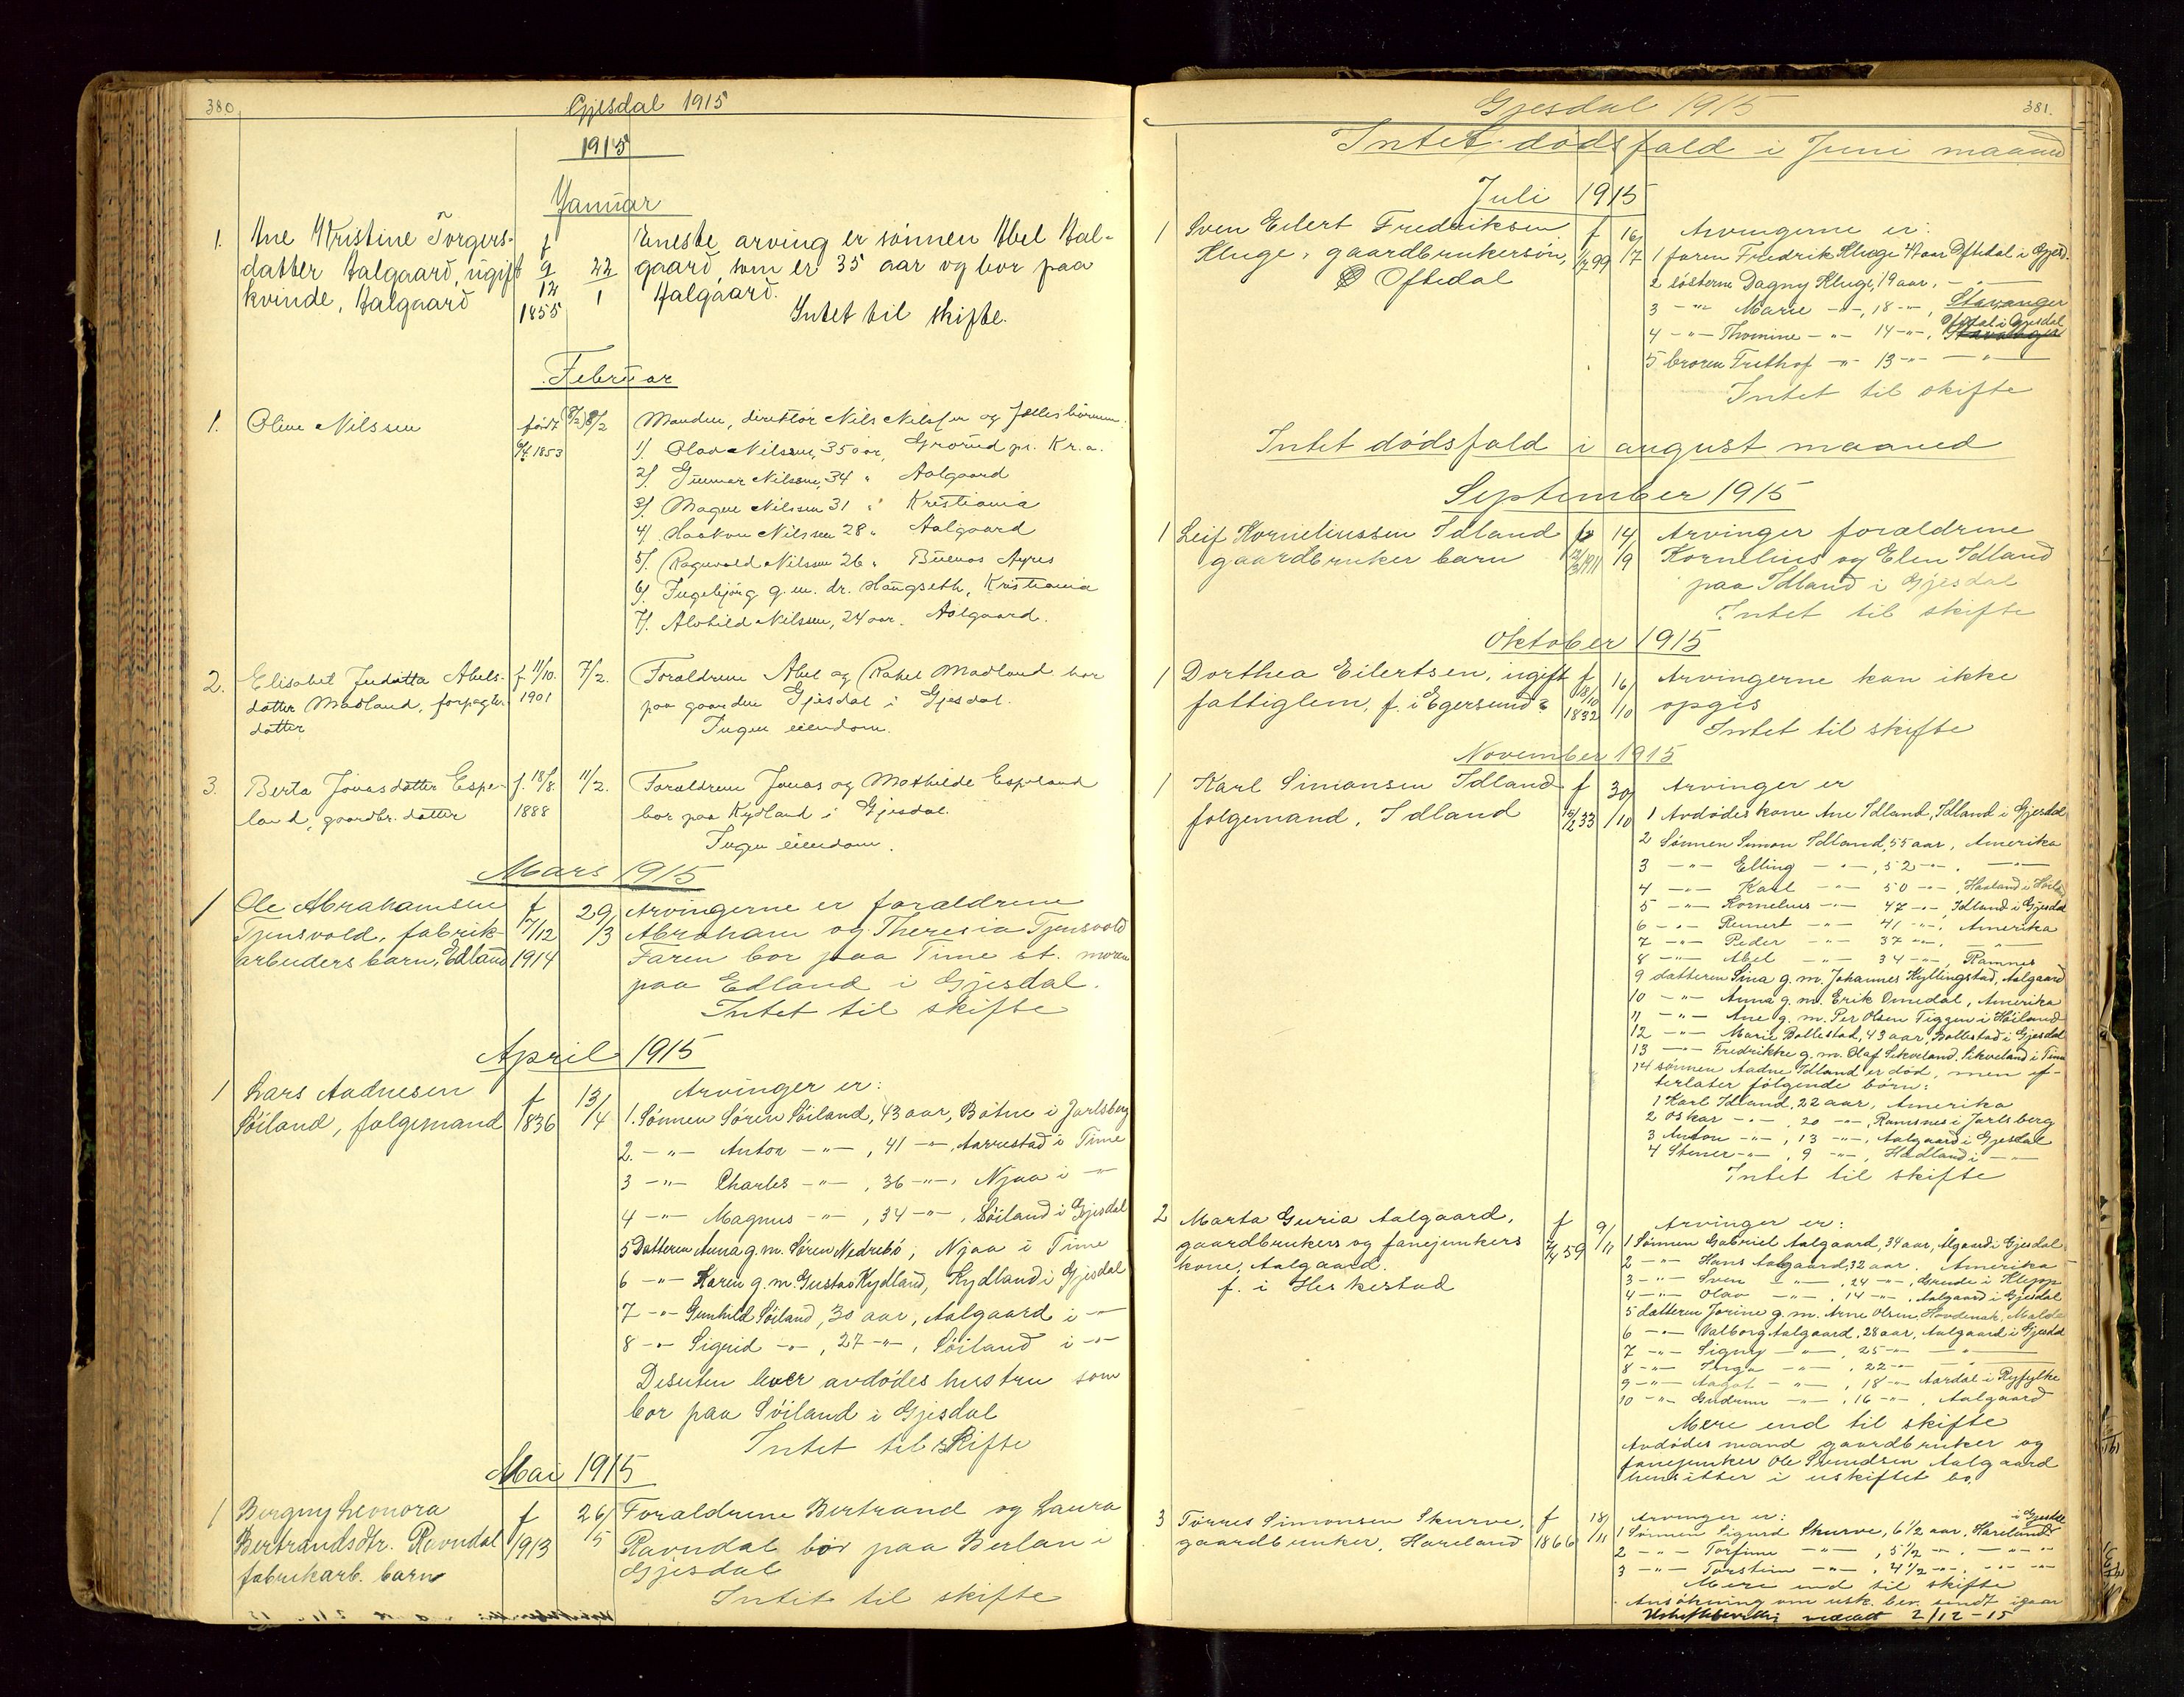 380
Gjesdal 1915
1915
Januar
1. Ane Kristine Torgers- f Eneste arving er sönnen Abel Aal-
datter Aalgaard, ugift 9/12 22/1 gaard, som er 35 aar og bor paa
kvinde, Aalgaard 1855 Aalgaard.
Intet til skifte.
Februar
1. Oline Nilssen født 6/4 1853 (8/2) 8/2 Manden, direktör Nils Nilssen og fælles börnene:
1/. Olav Nilssen, 35 aar, Grorud pr. Kr.a.
2/. Gunnar Nilssen, 34 " Aalgaard
3/. Magne Nilssen 31 " Kristiania
4/. Haakon Nilssen 28 " Aalgaard
5/. Ragnvald Nilssen 26 " Buenos Ayres
6/. Ingebjörg g. m. dr. Haugseth, Kristiania
7/. Alvhild Nilssen, 24 aar. Aalgaard.
2. Elisabet Judatta Abels- f. 11/10 7/2. Forældrene Abel og Rakel Madland bor
datter Madland, forpagter- 1901 paa gaarden Gjesdal i Gjesdal.
datter Ingen eiendom.
3. Berta Jonasdatter Espe- f. 18/8 11/2. Forældrene Jonas og Mathilde Espeland
land, gaardbr. datter 1888 bor paa Kydland i Gjesdal.
Ingen eiendom.
Mars 1915
1 Ole Abrahamsen f 29/3 Arvingerne er forældrene
Tjensvold, fabrik- 17/12 Abraham og Theresia Tjensvold
arbeiders barn, Edland 1914 Faren bor paa Time st. moren
paa Edland i Gjesdal.
Intet til skifte
April 1915
1 Lars Aadnesen f 13/4 Arvinger er:
Söiland, folgemand 1836 1. Sönnen Sören Söiland, 43 aar, Botne i Jarlsberg
2. -"- Anton -"-, 41 -"-, Aarrestad i Time
3 -"- Charles -"-, 36 -"-, Njaa i -"-
4 -"- Magnus -"-, 34 -"-, Söiland i Gjesdal
5 Datteren Anna g. m. Sören Nedrebö, Njaa i Time
6 -"- Karen g. m. Gustav Kydland, Kydland i Gjesdal
7 -"- Gunhild Söiland, 30 aar, Aalgaard i -"-
8 -"- Sigrid -"-, 27 -"-, Söiland i -"-
Desuten lever avdödes hustru som
bor paa Söiland i Gjesdal
Intet til skifte
Mai 1915
1 Bergny Leonora f 26/5 Forældrene Bertrand og Laura
Bertrandsdtr. Ravndal 1913 Ravndal bor paa Berlan i
fabrikarb. barn Gjesdal
Intet til skifte
381.
Gjesdal 1915
Intet dödsfald i Juni maaned
Juli 1915
1 Sven Eilert Fredriksen f 16/7 Arvingerne er:
Kluge, gaardbrukersön, 1/7 99 1 faren Fredrik Kluge 47 aar Oftedal i Gjesd.
Oftedal 2 söstern Dagny Kluge, 19 aar, -"-
3 -"- Marie -"-, 18 -"-, Stavanger
4 -"- Thomine -"- 14 -"-, Oftedal i Gjesdal
5 broren Frithof -"- 13 -"- -"-
Intet til skifte
Intet dödsfald i august maaned
September 1915
1 Leif Korneliussen Idland f 14/9 Arvinger forældrene
gaardbruker barn 1911 Kornelius og Elen Idland
paa Idland i Gjesdal
Intet til skifte
Oktober 1915
1 Dorthea Eilertsen, ugift f 16/10 Arvingerne kan ikke
fattiglem, f. i Egersund? 18/10 1832 opgis
Intet til skifte
November 1915
1 Karl Simonsen Idland f 30/10 Arvinger er
folgemand, Idland 33 1 Avdödes kone Ane Idland, Idland i Gjesdal
2 Sönnen Simon Idland, 55 aar, Amerika
3 -"- Elling -"-, 52 -"-, -"-
4 -"- Karl -"- 50 -"-, Haaland i Höiland
5 -"- Kornelius -"- 47 -"-, Idland i Gjesdal
6 -"- Reinert -"- 41 -"-, Amerika
7 -"- Peder -"- 37 -"-, -"-
8 -"- Abel -"- 34 -"-, Ramnes
9 datteren Sina g. m. Johannes Kyllingstad, Aalgaard
10 -"- Anna g. m. Erik Omdal, Amerika
11 -"- Ane g. m. Per Olsen Tiggen i Höiland
12 -"- Marie Bollestad, 43 aar, Bollestad i Gjesdal
13 -"- Fredrikke g. m. Olaf Sikveland, Sikveland i Time
14 sönnen Aadne Idland er död, men ef-
terlater fölgende börn:
1 Karl Idland, 22 aar, Amerika
2 Oskar -"-, 20 -"-, Ramnes i Jarlsberg
3 Anton -"-, 13 -"-, Aalgaard i Gjesdal
4 Steiner -"-, 9 -"-, Hadland i -"-
Intet til skifte
2 Marta Guria Aalgaard, f 9/11 Arvinger er:
gaardbrukers og fanejunkers 59 1 Sönnen Gabriel Aalgaard, 34 aar, Algaard i Gjesdal
kone, Aalgaard. 2 -"- Hans Aalgaard, 32 aar, Amerika
f. i Heskestad 3 -"- Sven -"-, 24 -"-, Grude i Klepp
4 -"- Olav -"-, 14 -"-, Aalgaard i Gjesdal
5 datteren Jorine g. m. Arne Olsen Hovdenak, Molde
6 -"- Valborg Aalgaard, 28 aar, Aalgaard i Gjesdal
7 -"- Signy -"-, 25 -"- -"-
8 -"- Inga -"-, 22 -"- -"-
9 -"- Aagot -"-, 18 -"- Aardal i Ryfylke
10 -"- Gudrun -"-, 16 -"-, Aalgaard
Mere end til skifte
Avdödes mand gaardbruker og
fanejunker Ole Svendsen Aalgaard
hensitter i uskiftet bo.
3 Törres Simonsen Skurve, f 18/11 Arvinger er: i Gjesdal
gaardbruker, Hareland 1866 1 Sönnen Sigurd Skurve, 6 1/2 aar, Hareland
2 -"- Torfinn -"-, 5 1/2 -"-, -"-
3 -"- Torstein -"-, 4 1/2 -"-, -"-
Mere end til skifte
Ansökning om usk. bev. sendt igaar
Uskiftebevilling meddelt 2/12-15